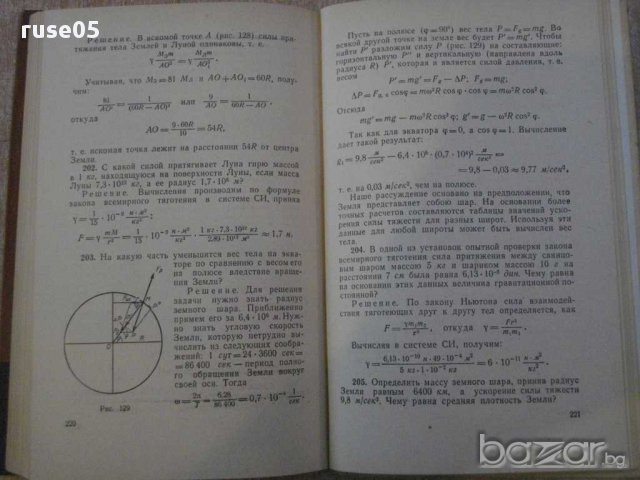 ruse05
Решение. В искомой точке A (рис. 128) силы при-
тяжения тела Землей и Луной одинаковы, т. е.
Учитывая, что M₃=81 Mл и AO+AO₁=60R, полу-
чим:
81/AO² = 1/(60R−AO)² или 9/AO = 1/(60R−AO),
откуда
AO = 9·60R/10 = 54R,
т. е. искомая точка лежит на расстоянии 54R от центра
Земли.
202. С какой силой притягивает Луна гирю массой
в 1 кг, находящуюся на поверхности Луны, если масса
Луны 7,3·10²² кг, а ее радиус 1,7·10⁶ м?
Решение. Вычисления производим по формуле
закона всемирного тяготения в системе СИ, приняв
γ = 1/15 · 10⁻⁹ н·м²/кг²:
203. На какую часть уменьшится вес тела на эква-
торе по сравнению с весом его
на полюсе вследствие враще-
ния Земли?
Решение. Для решения
задачи нужно знать радиус
земного шара. Приближенно
примем его за 6,4·10⁶ м. Нуж-
но знать угловую скорость
Земли, которую нетрудно вы-
числить из следующих сообра-
жений: 1 сут=24·3600 сек=
=86400 сек — период полно-
го обращения Земли вокруг
своей оси. Тогда
ω = 2π/T = 6,28/86 400 = 0,7·10⁻⁴ 1/сек.
Рис. 129
220
Пусть на полюсе (φ=90°) вес тела P=F₀=mg. Во
всякой другой точке на земле вес будет P'=mg'. Чтобы
найти P' разложим силу P (рис. 129) на составляющие:
горизонтальную P'' и вертикальную (направлена вдоль
радиуса R) P', которая и является силой давления, т. е.
вес.
Отсюда
mg' = mg − mω²R cos² φ; g' = g − ω²R cos² φ.
Так как для экватора φ=0, а cos φ=1. Вычисление
дает такой результат:
=9,8 − 0,03 ≈ 9,77 м/сек²,
т. е. на 0,03 м/сек², чем на полюсе.
Наше рассуждение основано на предположении, что
Земля представляет собой шар. На основании более
точных расчетов составляются таблицы значений уско-
рения силы тяжести для разных широт. Используя эти
данные для любой широты может быть вычислен вес
тела.
204. В одном из установок опытной проверки закона
всемирного тяготения сила притяжения между свинцо-
вым шаром массою 5 кг и шариком массою 10 г на
расстоянии 7 см была равна 6,13·10⁻³ дин. Чему равна
на основании этих данных величина гравитационной по-
стоянной?
Решение. По закону Ньютона сила взаимодей-
ствия тяготеющих друг к другу тел определяется, как
F = γm₁m₂/r², откуда γ = Fr²/m₁m₂.
Вычисляя в системе СИ, получим:
205. Определить массу земного шара, приняв радиус
Земли равным 6400 км, а ускорение силы тяжести
9,8 м/сек². Чему равна средняя плотность Земли?
221
bazar.bg